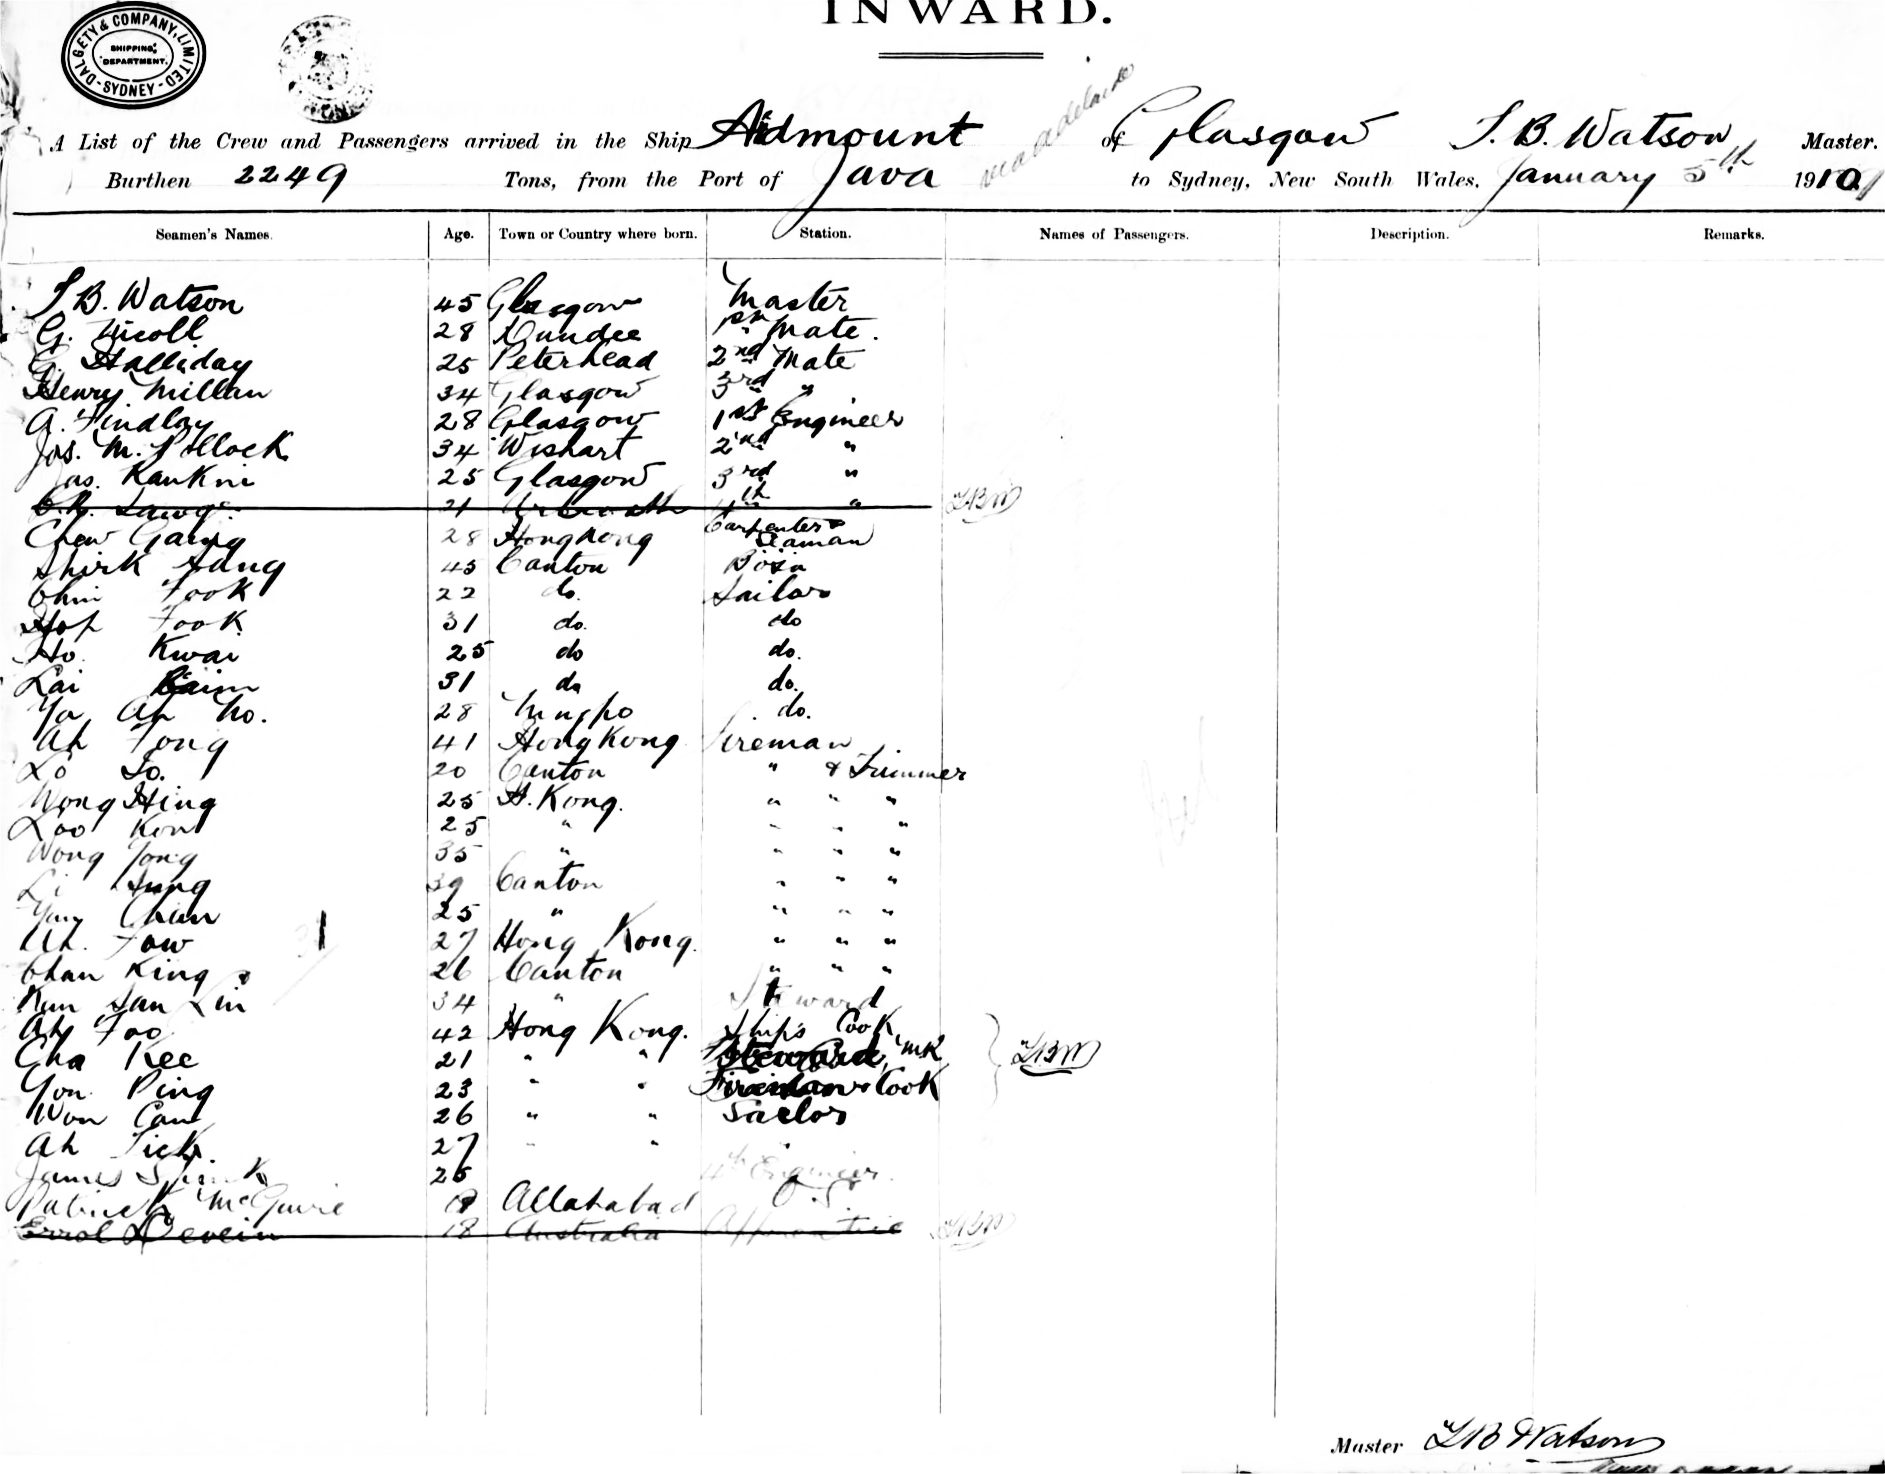 INWARD.
DALGETY & COMPANY, LIMITED
SHIPPING
DEPARTMENT.
SYDNEY
via Adelaide
A List of the Crew and Passengers arrived in the Ship Aidmount of Glasgow T. B. Watson Master.
Burthen 2249 Tons, from the Port of Java to Sydney, New South Wales, January 5th 1910
Seamen's Names. Age. Town or Country where born. Station. Names of Passengers. Description. Remarks.
T B. Watson 45 Glasgow Master
G. Nicoll 28 Dundee 1st Mate.
G. Halliday 25 Peterhead 2nd Mate
Henry Millan 34 Glasgow 3rd "
A. Findlay 28 Glasgow 1st Engineer
Jas. M. Pollock 34 Wishart 2nd "
Jas. Rankni 25 Glasgow 3rd "
21 4th " TBW
Chew Gaung 28 HongKong Carpenter & Seaman
Shirk Hang 45 Canton Bosn
Chin Fook 22 do. Sailor
Hop Fook 31 do. do
Ho Kwai 25 do do.
Lai 31 do do.
Ya Ah No. 28 Ningpo do.
Ah Fong 41 Hong Kong Fireman
Lo So. 20 Canton " & Trimmer
Wong Hing 25 H. Kong. " " "
Loo Kow 25 " " " "
Wong Yong 35 " " " "
Li Sung 39 Canton " " "
Yung Chun 25 " " " "
Ah. Fow 27 Hong Kong. " " "
Chan King 26 Canton " " "
Kun San Lin 34 " Steward
Ah Foo 42 Hong Kong. Ships Cook
Cha Kee 21 " " Steward, MR TBW
Yon Ping 23 " " Fireman & Cook
Won Can 26 " " Sailor
Ah Tick. 27 " " "
James 26 4th Engineer
Patrick McGuire 19 Allahabad O.S.
Errol Devein 18 Australia Apprentice TBW
Master TB Watson